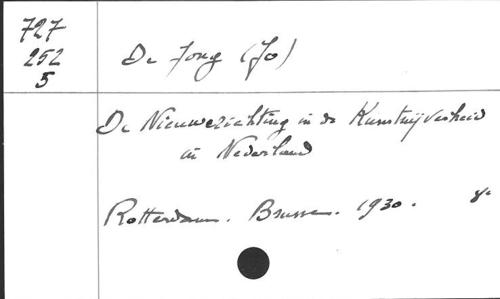 727
252
5
De Jong (Jo)
De Nieuwerichting in de Kunstnijverheid
in Nederland
Rotterdam. Brusse. 1930. 8°